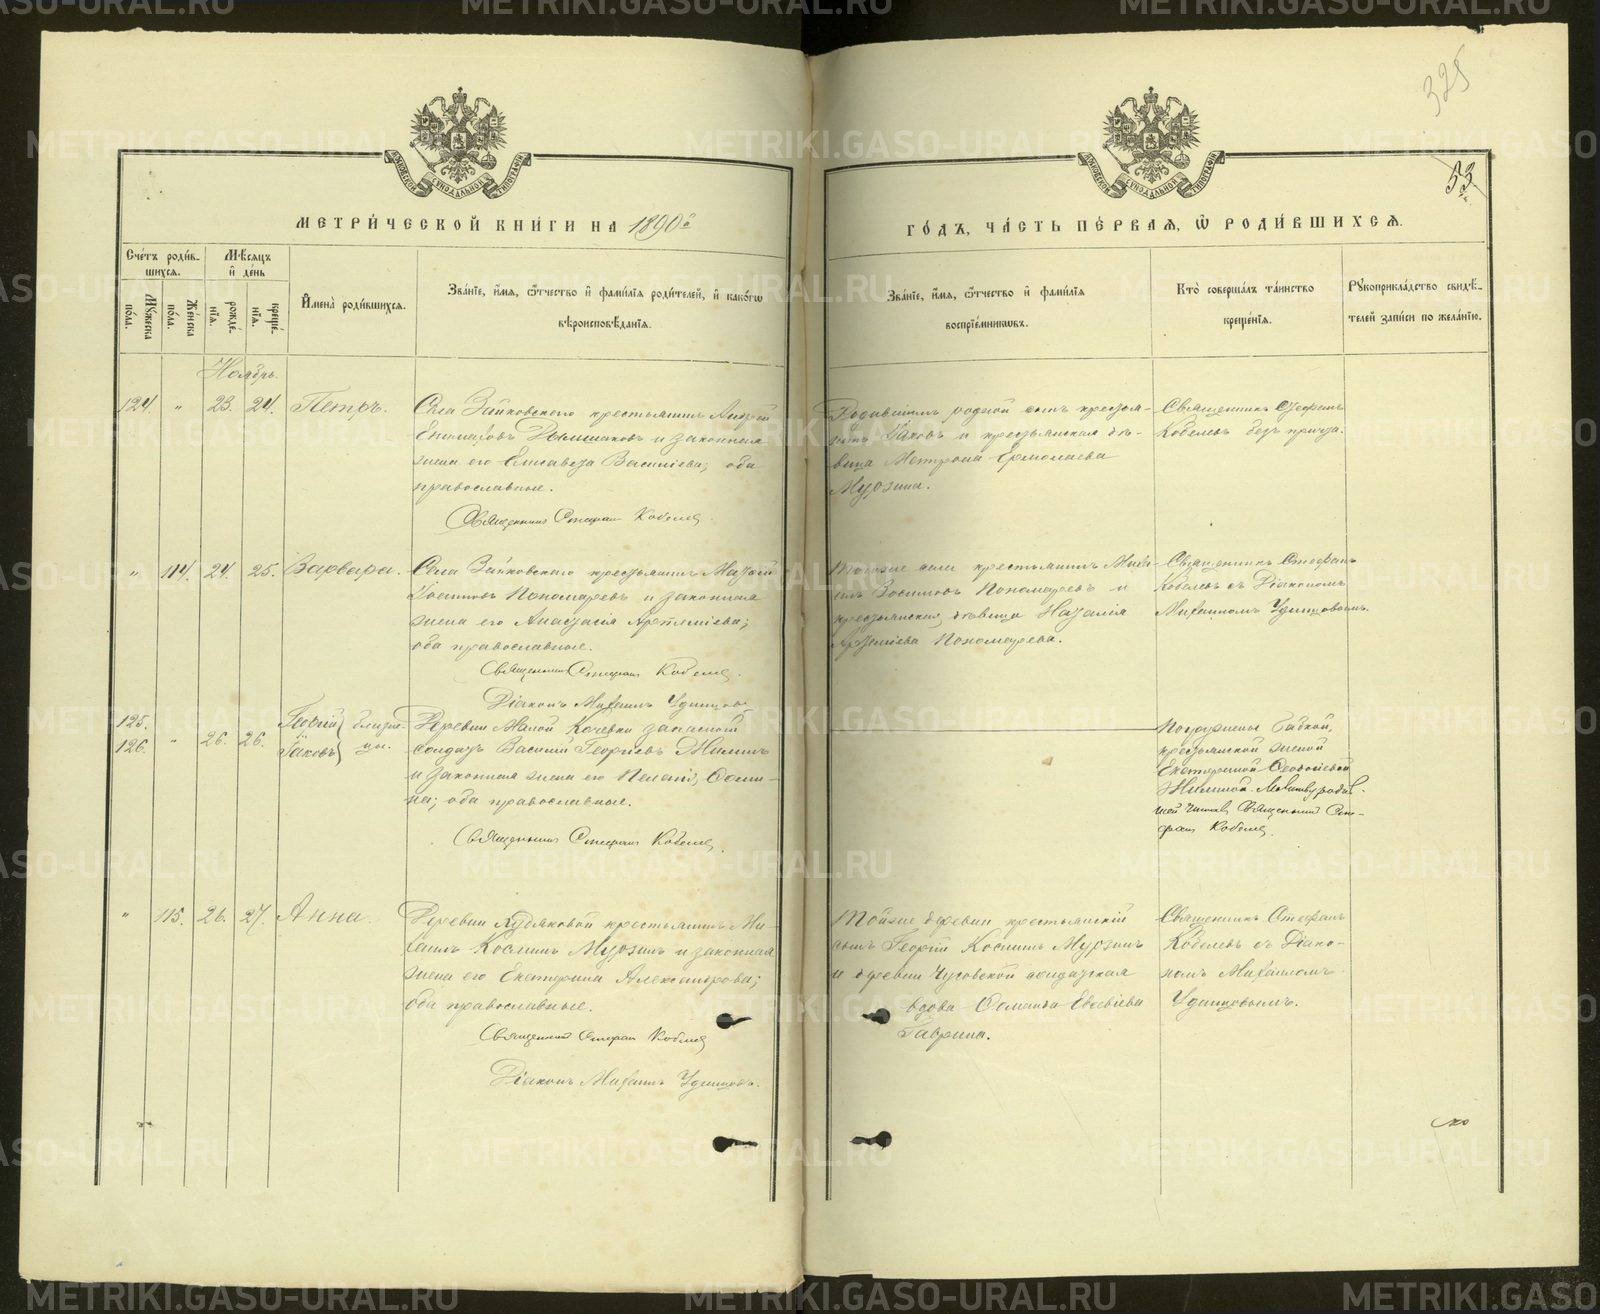 325
53
МЕТРИ́ЧЕСКОЙ КНИ́ГИ НА 1890й
ГО́ДЪ, ЧА́СТЬ ПЕ́РВАЯ, Ѡ РОДИ́ВШИХСЯ.
Сче́тъ роди́в-
шихся.
Му́жеска по́ла.
Же́нска по́ла.
Мѣ́сяцъ и де́нь
рожде́-нія.
креще́-нія.
Имена̀ роди́вшихся.
Зва́ніе, и́мя, о́тчество и фами́лія роди́телей, и како́гѡ
вѣроисповѣ́данія.
Зва́ніе, и́мя, о́тчество и фами́лія
воспріе́мниковъ.
Кто̀ соверша́лъ та́инство
креще́нія.
Рꙋкоприкла́дство свидѣ́-
телей за́писи по жела́нію.
Ноябрь.
124. " 23. 24. Петръ.
Села Зайковскаго крестьянинъ Андрей
Дымшаковъ и законная
жена его Елисавета Василіева; оба
православные.
Священникъ Стефанъ Кобелев
Родившимъ родной сынъ крестья-
нинъ Іаковъ и крестьянская дѣ-
вица Матрона Ермолаева
Мурзина.
Священникъ Стефанъ
Кобелевъ безъ причта.
" 114. 24. 25. Варвара.
Села Зайковскаго крестьянинъ
Зосимовъ Пономаревъ и законная
жена его Анастасія Артеміева;
оба православные.
Священникъ Стефанъ Кобелев.
Діаконъ Михаилъ Удинцовъ
Тогоже села крестьянинъ Миха-
илъ Зосимовъ Пономаревъ и
крестьянская дѣвица Наталія
Артеміева Пономарева.
Священникъ Стефанъ
Кобелевъ съ Діакономъ
Михаиломъ Удинцовымъ.
125.
126. " 26. 26.
Георгій
Іаковъ близне-
цы.
Деревни Малой Кочевки запасной
солдатъ Василій Георгіевъ Жилинъ
и законная жена его Пелагія Ѳоми-
на; оба православные.
Священникъ Стефанъ Кобелев.
Погружены бабкой,
крестьянской женой
Екатериной
Жилиной. Молитву родив-
шей читалъ Священникъ Сте-
фанъ Кобелев.
" 115. 26. 27. Анна.
Деревни Худяковой крестьянинъ Ми-
хаилъ Космин Мурзинъ и законная
жена его Екатерина Александрова;
оба православные.
Священникъ Стефанъ Кобелев
Діаконъ Михаилъ Удинцовъ.
Тойже деревни крестьянскій
сынъ Георгій Космин Мурзинъ
и деревни Чусовской солдатская
вдова Евсевіева
Гаврина.
Священникъ Стефанъ
Кобелевъ съ Діако-
номъ Михаиломъ
Удинцовымъ.
METRIKI.GASO-URAL.RU